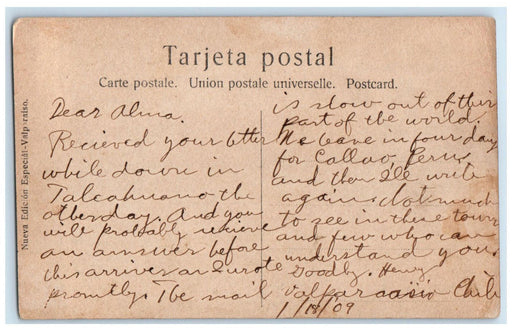 Tarjeta postal
Carte postale. Union postale universelle. Postcard.
Nueva Edición Especial:-Valparaiso.
Dear Alma.
Recieved your letter
while down in
Talcahuano the
other day. And you
will probably recieve
an answer before
this arrives as I wrote
promtly. The mail
is slow out of this
part of the world.
We leave in four days
for Callao Peru,
and then I'll write
again. Not much
to see in these towns
and few who can
understand you.
Goodby. Henry
Valparaaisio Chili
1/18/09